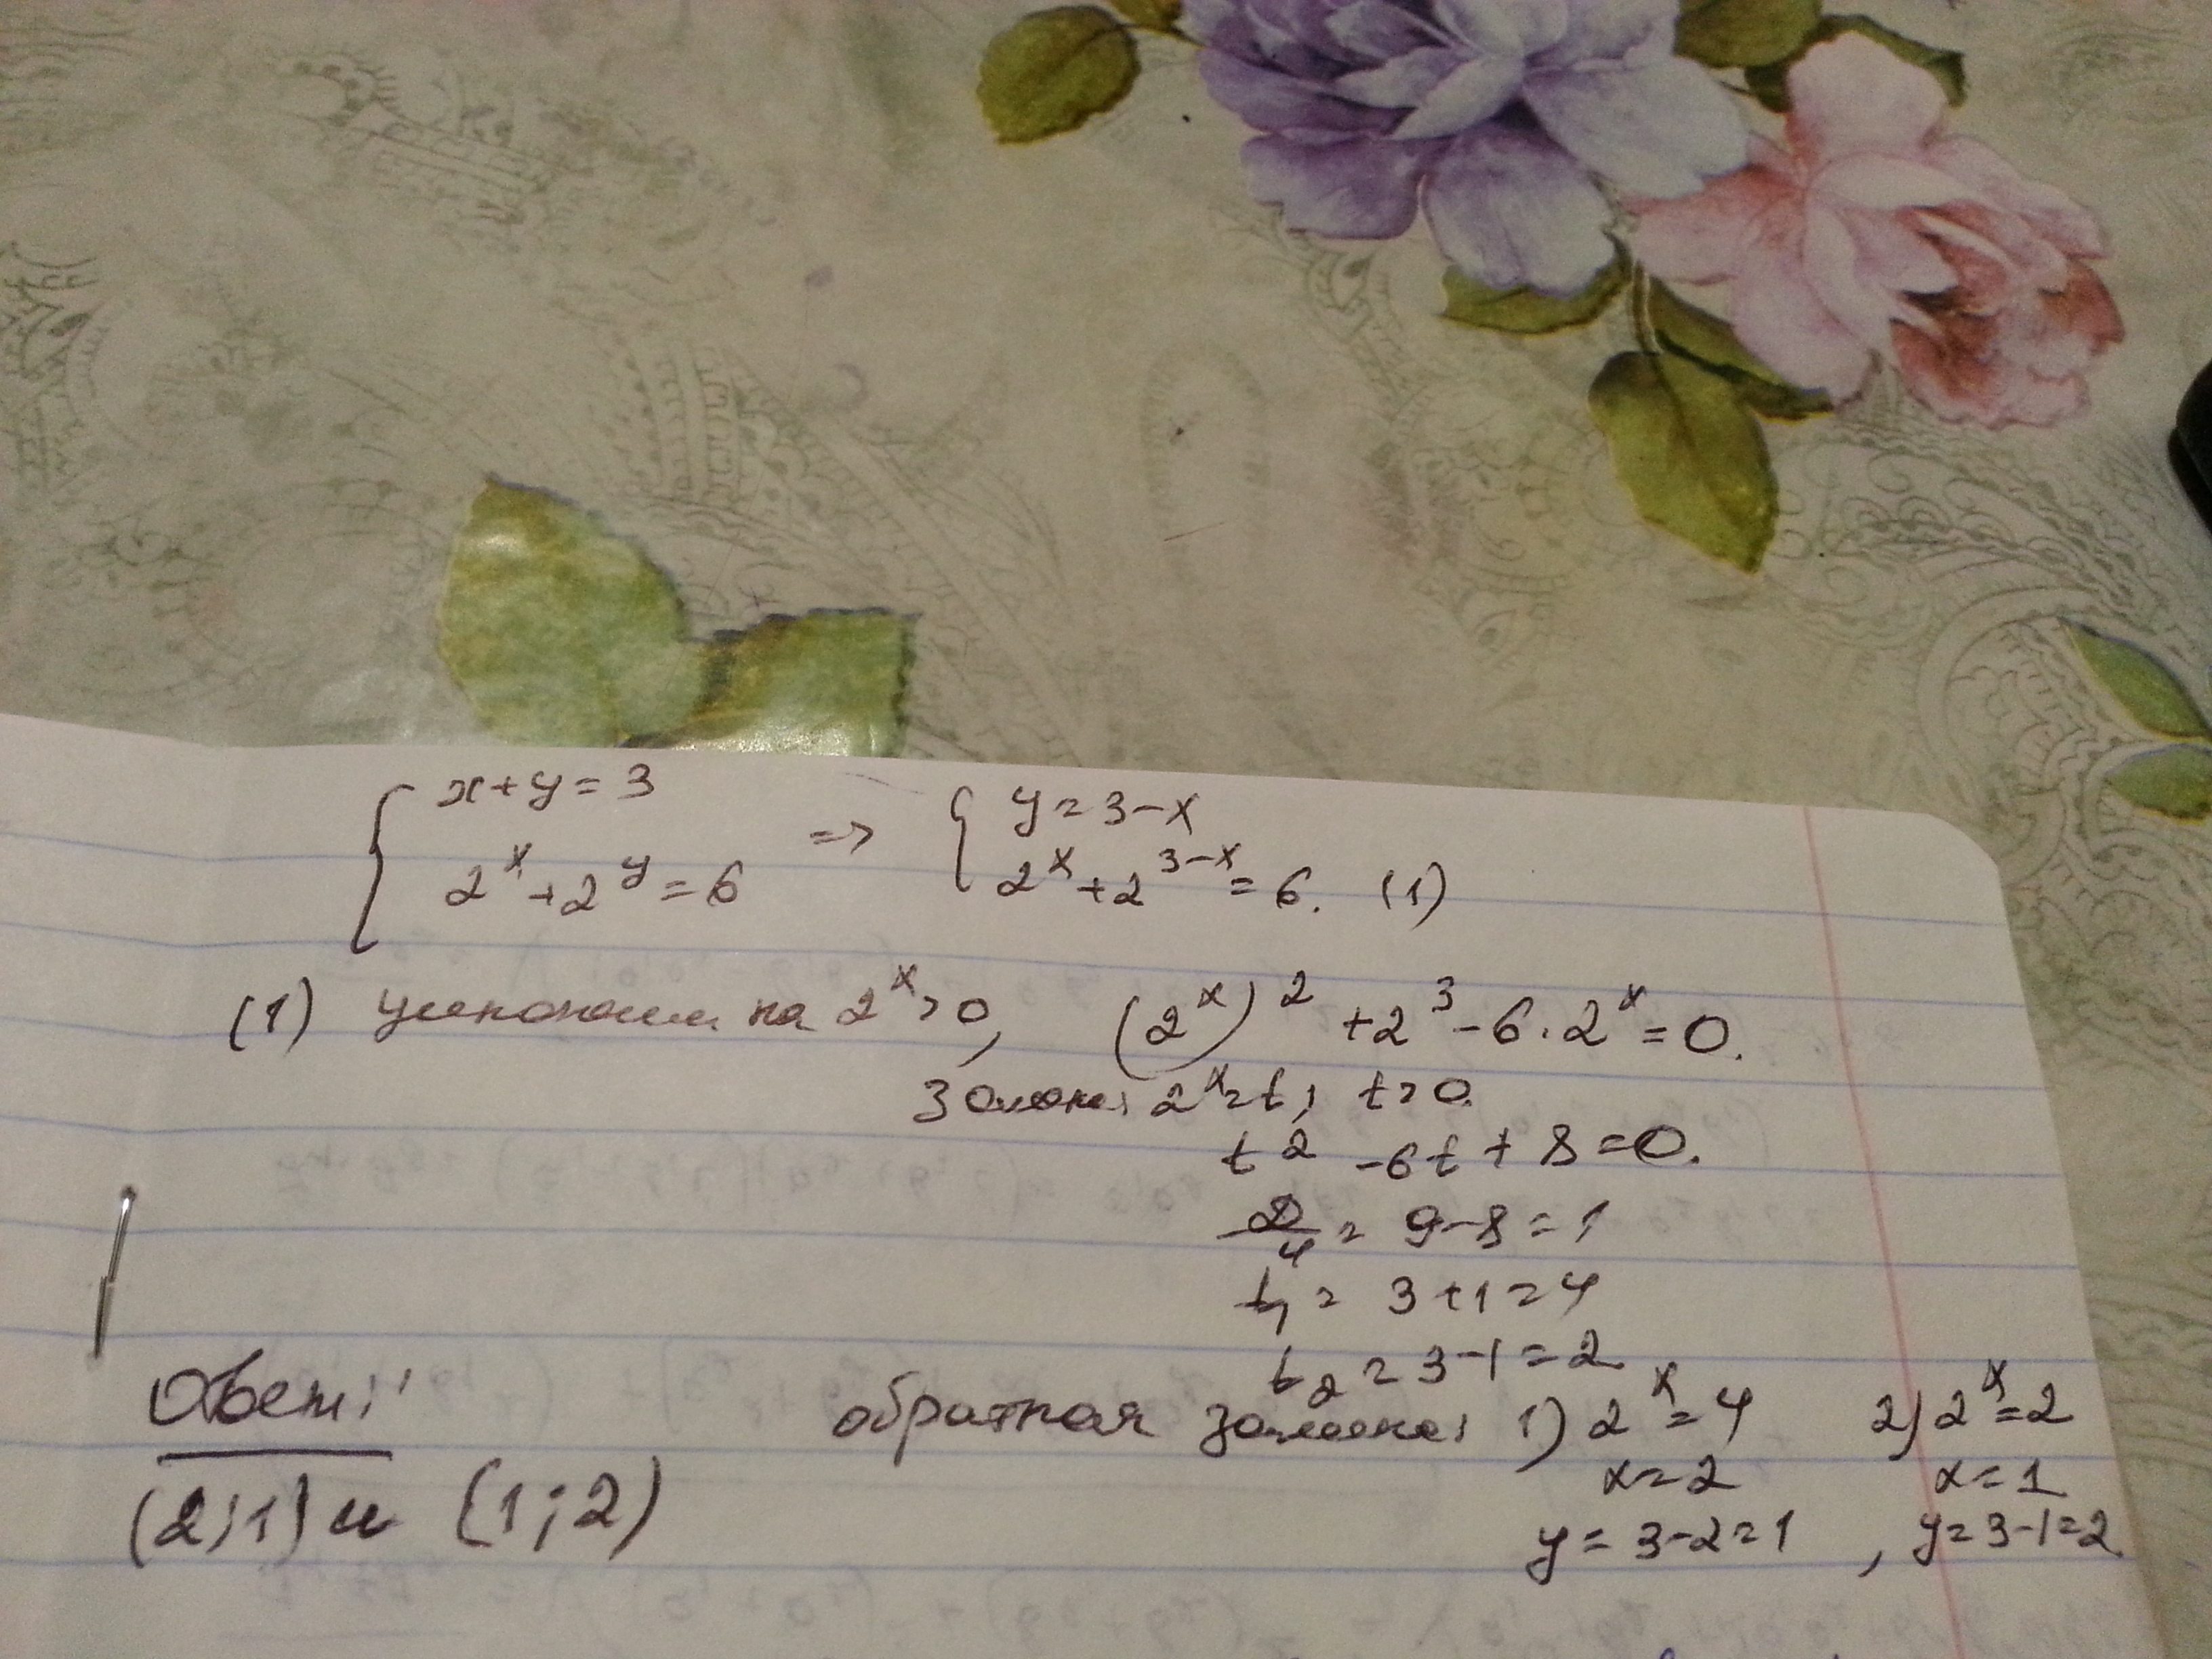 { x+y=3 => { y=3-x
2^x+2^y=6 2^x+2^(3-x)=6. (1)
(1) умножим на 2^x>0, (2^x)^2+2^3-6·2^x=0.
замена: 2^x=t; t>0.
t^2-6t+8=0.
D/4=9-8=1
t1=3+1=4
t2=3-1=2
обратная замена: 1) 2^x=4 2) 2^x=2
x=2 x=1
y=3-2=1, y=3-1=2
Ответ:
(2;1) и (1;2)